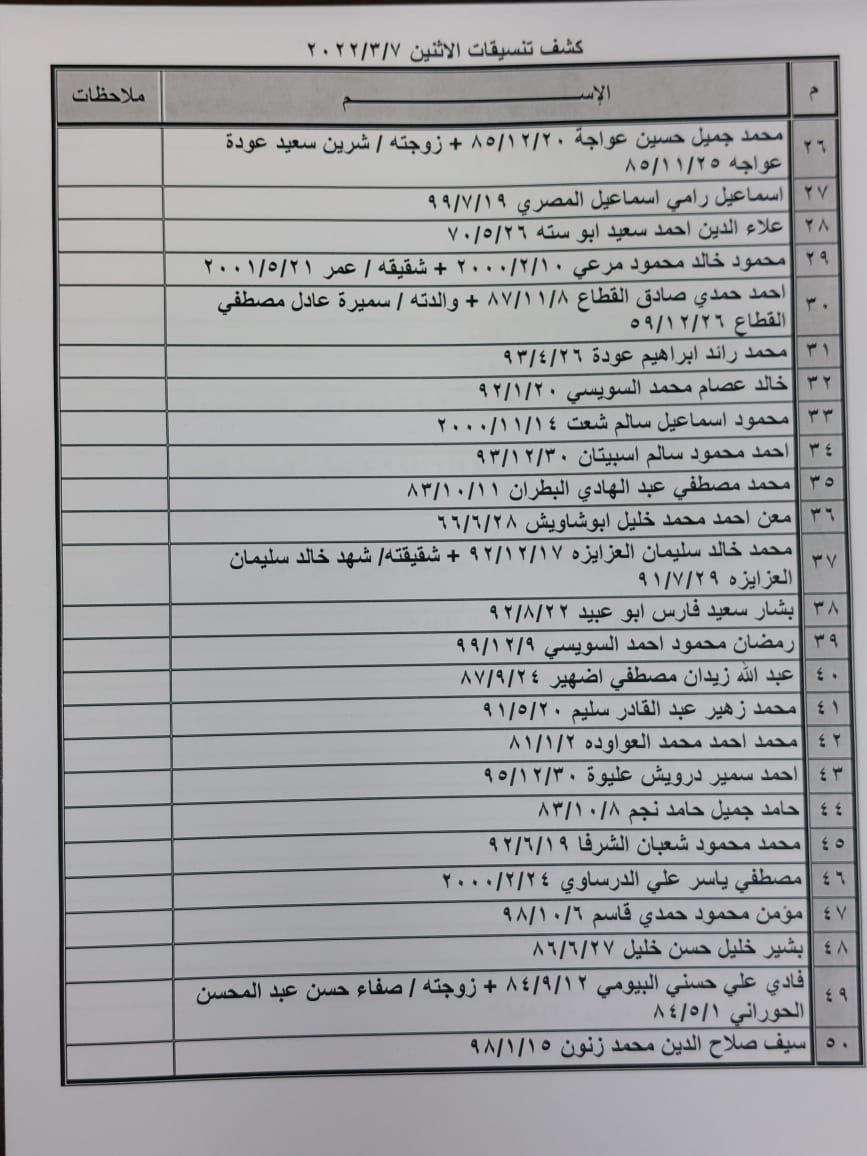 كشف تنسيقات الاثنين ٢٠٢٢/٣/٧
م الإســـــــــم ملاحظات
٢٦ محمد جميل حسين عواجة ٨٥/١٢/٢٠ + زوجته / شرين سعيد عودة
عواجه ٨٥/١١/٢٥
٢٧ اسماعيل رامي اسماعيل المصري ٩٩/٧/١٩
٢٨ علاء الدين احمد سعيد ابو سته ٧٠/٥/٢٦
٢٩ محمود خالد محمود مرعي ٢٠٠٠/٢/١٠ + شقيقه / عمر ٢٠٠١/٥/٢١
٣٠ احمد حمدي صادق القطاع ٨٧/١١/٨ + والدته / سميرة عادل مصطفي
القطاع ٥٩/١٢/٢٦
٣١ محمد رائد ابراهيم عودة ٩٣/٤/٢٦
٣٢ خالد عصام محمد السويسي ٩٢/١/٢٠
٣٣ محمود اسماعيل سالم شعت ٢٠٠٠/١١/١٤
٣٤ احمد محمود سالم اسبيتان ٩٣/١٢/٣٠
٣٥ محمد مصطفي عبد الهادي البطران ٨٣/١٠/١١
٣٦ معن احمد محمد خليل ابوشاويش ٦٦/٦/٢٨
٣٧ محمد خالد سليمان العزايزه ٩٢/١٢/١٧ + شقيقته/ شهد خالد سليمان
العزايزه ٩١/٧/٢٩
٣٨ بشار سعيد فارس ابو عبيد ٩٢/٨/٢٢
٣٩ رمضان محمود احمد السويسي ٩٩/١٢/٩
٤٠ عبد الله زيدان مصطفي اضهير ٨٧/٩/٢٤
٤١ محمد زهير عبد القادر سليم ٩١/٥/٢٠
٤٢ محمد احمد محمد العواوده ٨١/١/٢
٤٣ احمد سمير درويش عليوة ٩٥/١٢/٣٠
٤٤ حامد جميل حامد نجم ٨٣/١٠/٨
٤٥ محمد محمود شعبان الشرفا ٩٢/٦/١٩
٤٦ مصطفي ياسر علي الدرساوي ٢٠٠٠/٢/٢٤
٤٧ مؤمن محمود حمدي قاسم ٩٨/١٠/٦
٤٨ بشير خليل حسن خليل ٨٦/٦/٢٧
٤٩ فادي علي حسني البيومي ٨٤/٩/١٢ + زوجته / صفاء حسن عبد المحسن
الحوراني ٨٤/٥/١
٥٠ سيف صلاح الدين محمد زنون ٩٨/١/١٥